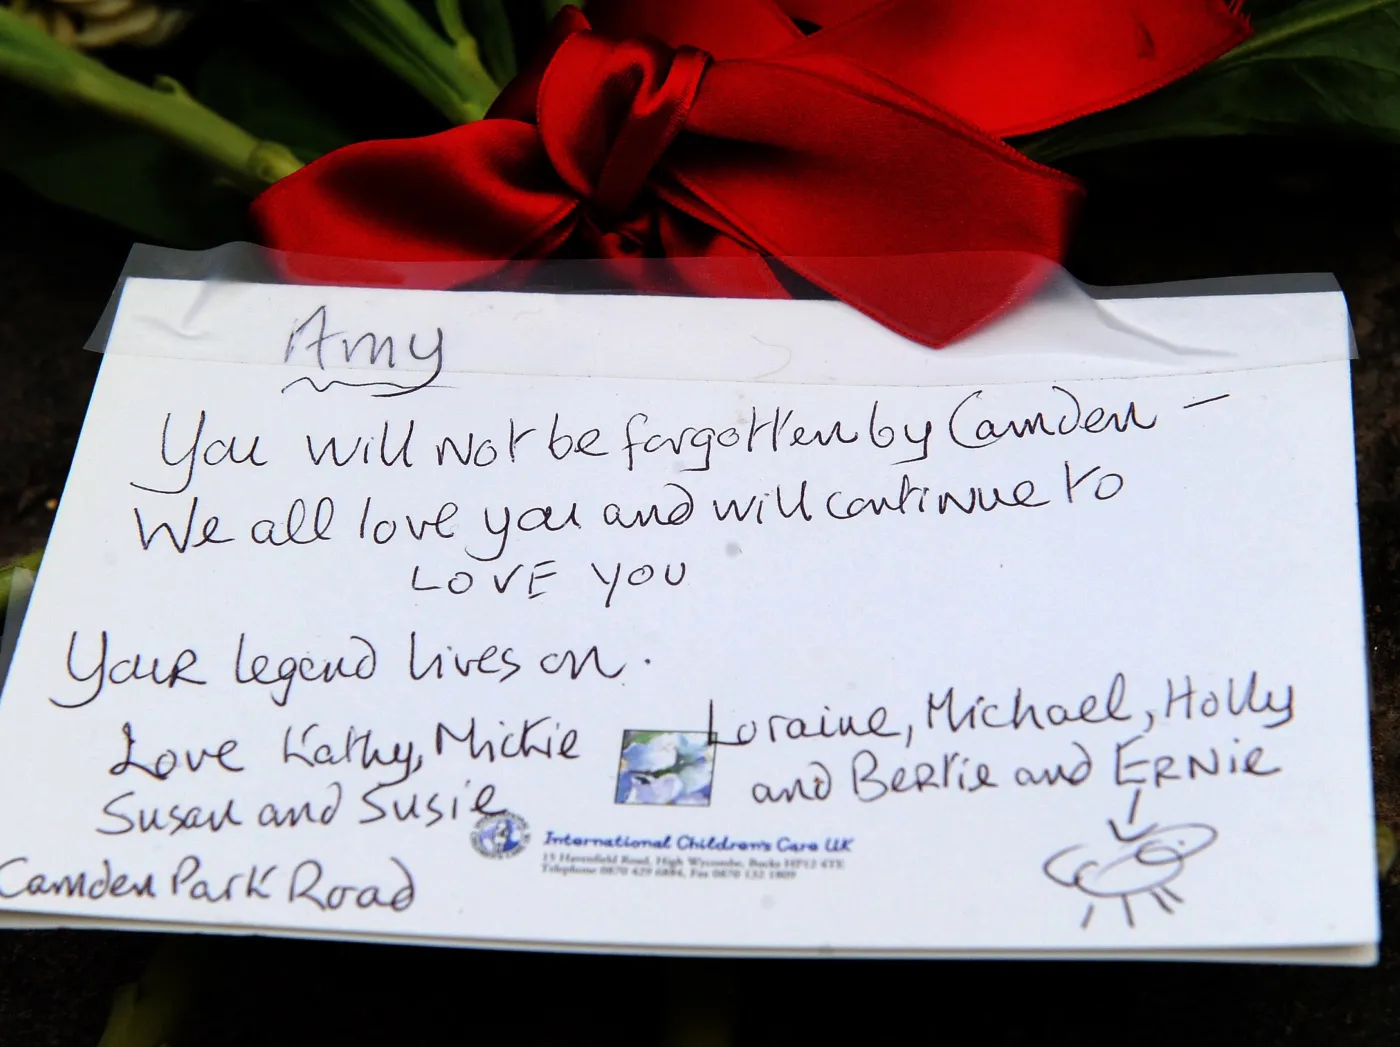 Amy
You will not be forgotten by Camden –
We all love you and will continue to
LOVE YOU
Your legend lives on.
Love Kathy, Mickie
Susan and Susie
Camden Park Road
Loraine, Michael, Holly
and Bertie and ERNIE
International Children's Care UK
15 Havenfield Road, High Wycombe, Bucks HP12 4TE
Telephone 0870 429 6884, Fax 0870 132 1809